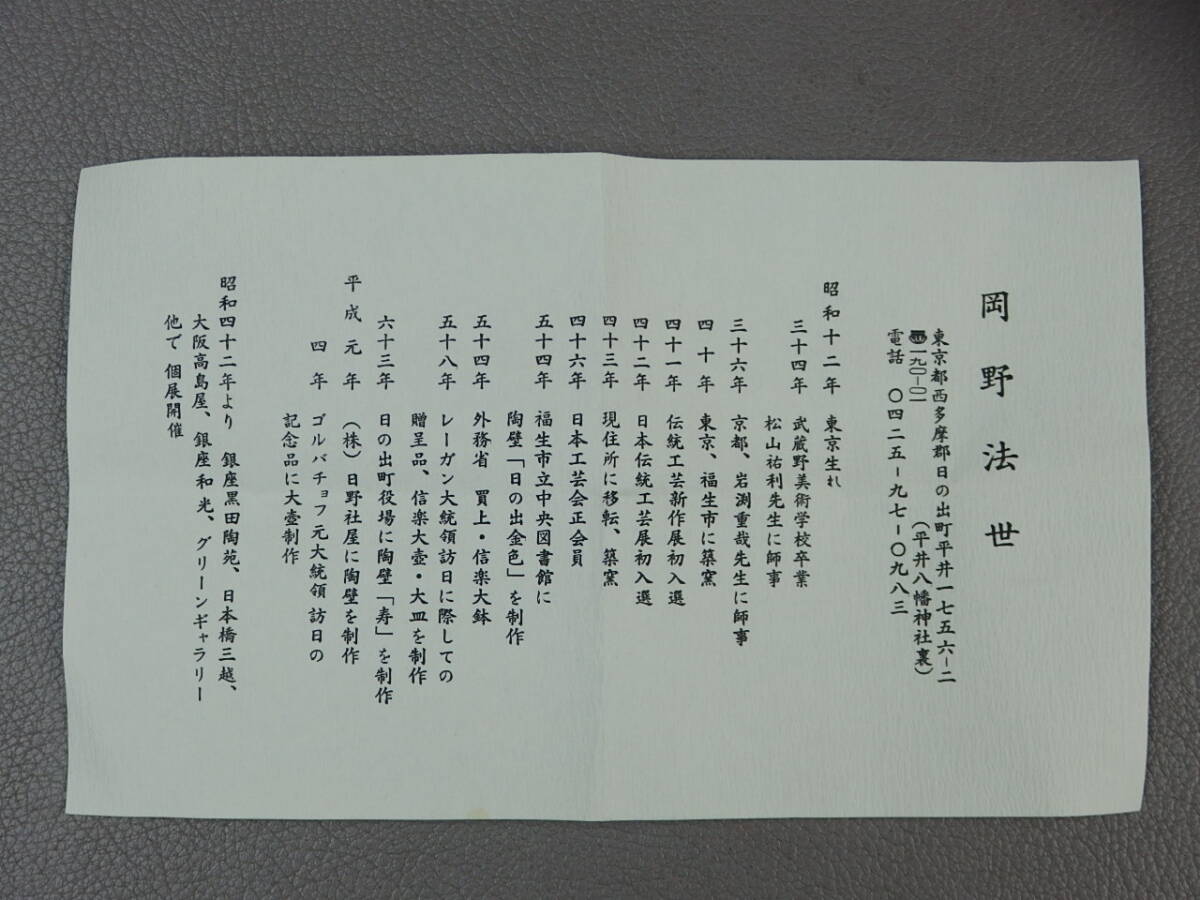 岡野法世
東京都西多摩郡日の出町平井一七五六ー二
(平井八幡神社裏)
一九〇-〇一
電話 〇四二五ー九七ー〇九八三
昭和十二年 東京生れ
三十四年 武蔵野美術学校卒業
松山祐利先生に師事
三十六年 京都、岩渕重哉先生に師事
四十年 東京、福生市に築窯
四十一年 伝統工芸新作展初入選
四十二年 日本伝統工芸展初入選
四十三年 現住所に移転、築窯
四十六年 日本工芸会正会員
五十四年 福生市立中央図書館に
陶壁「日の出金色」を制作
五十四年 外務省 買上・信楽大鉢
五十八年 レーガン大統領訪日に際しての
贈呈品、信楽大壺・大皿を制作
六十三年 日の出町役場に陶壁「寿」を制作
平成元年 (株)日野社屋に陶壁を制作
四年 ゴルバチョフ元大統領訪日の
記念品に大壺制作
昭和四十二年より 銀座黒田陶苑、日本橋三越、
大阪高島屋、銀座和光、グリーンギャラリー
他で個展開催